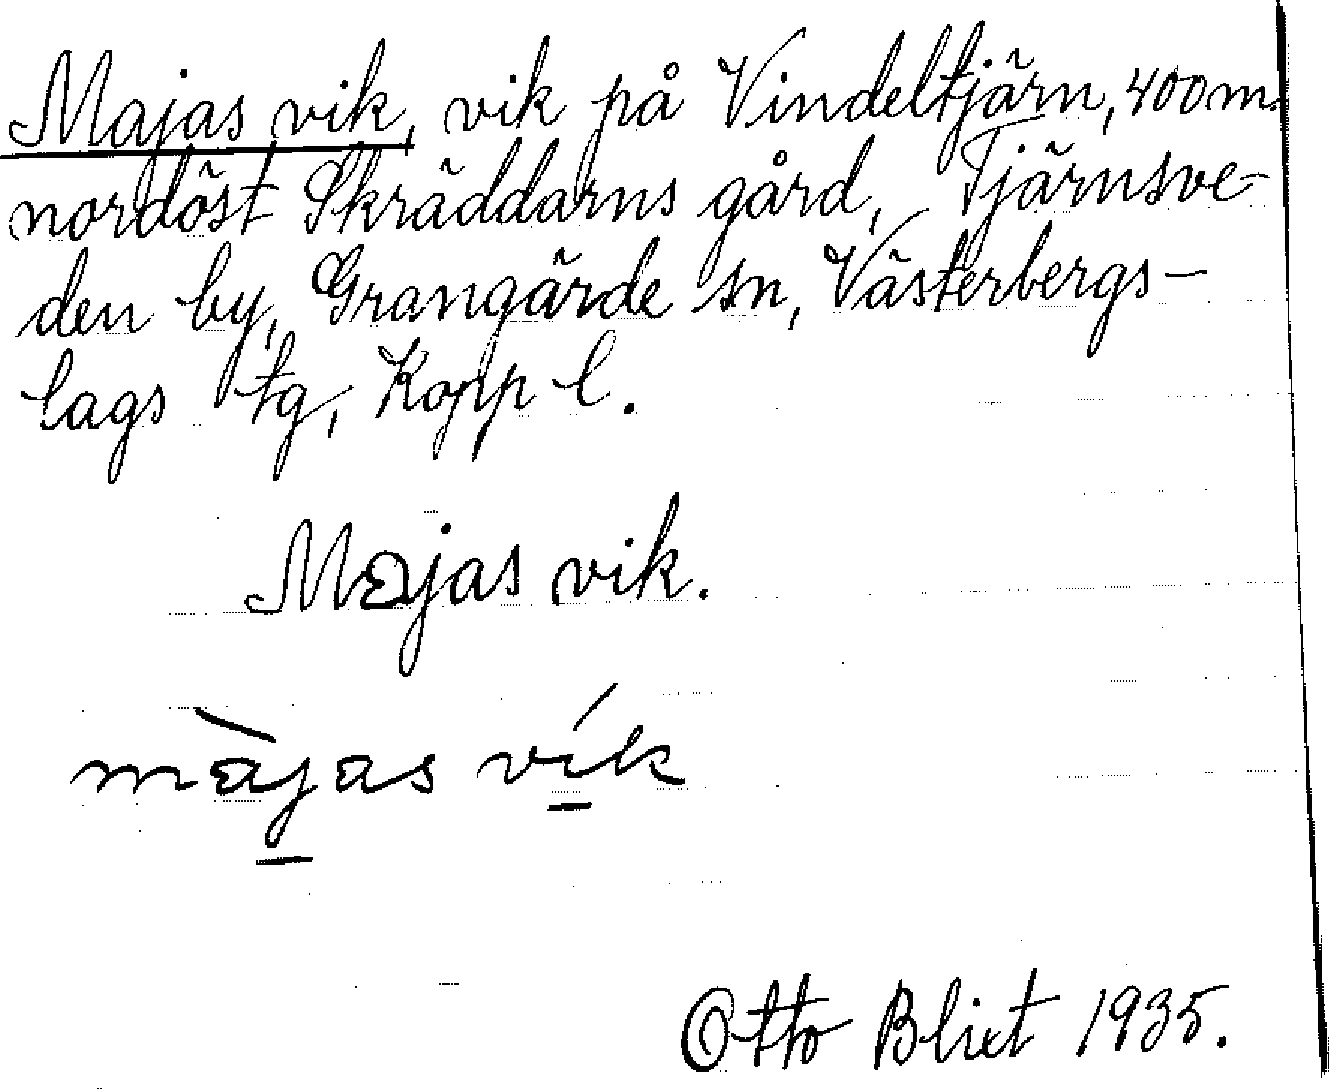 Majas vik, vik på Vindeltjärn, 400 m.
nordöst Skräddarns gård, Tjärnsve-
den by, Grangärde sn, Västerbergs-
lags tg, Kopp l.
Majas vik.
màjas vík
Otto Blixt 1935.